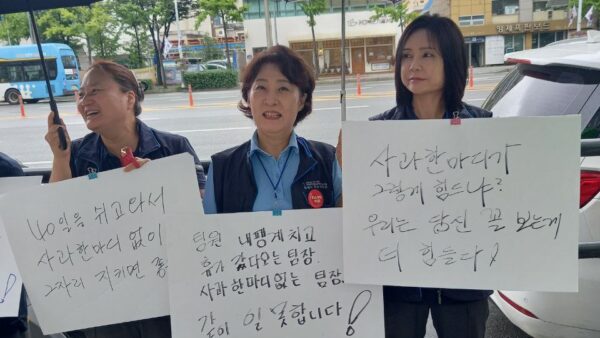 40일을 쉬고 와서
사과한마디 없이
그자리 지키면 좋
팀원 내팽게치고
휴가 갔다오는 팀장
사과한마디없는 팀장
같이 일 못합니다!
사과한마디가
그렇게 힘드냐?
우리는 당신 꼴 보는게
더 힘들다!